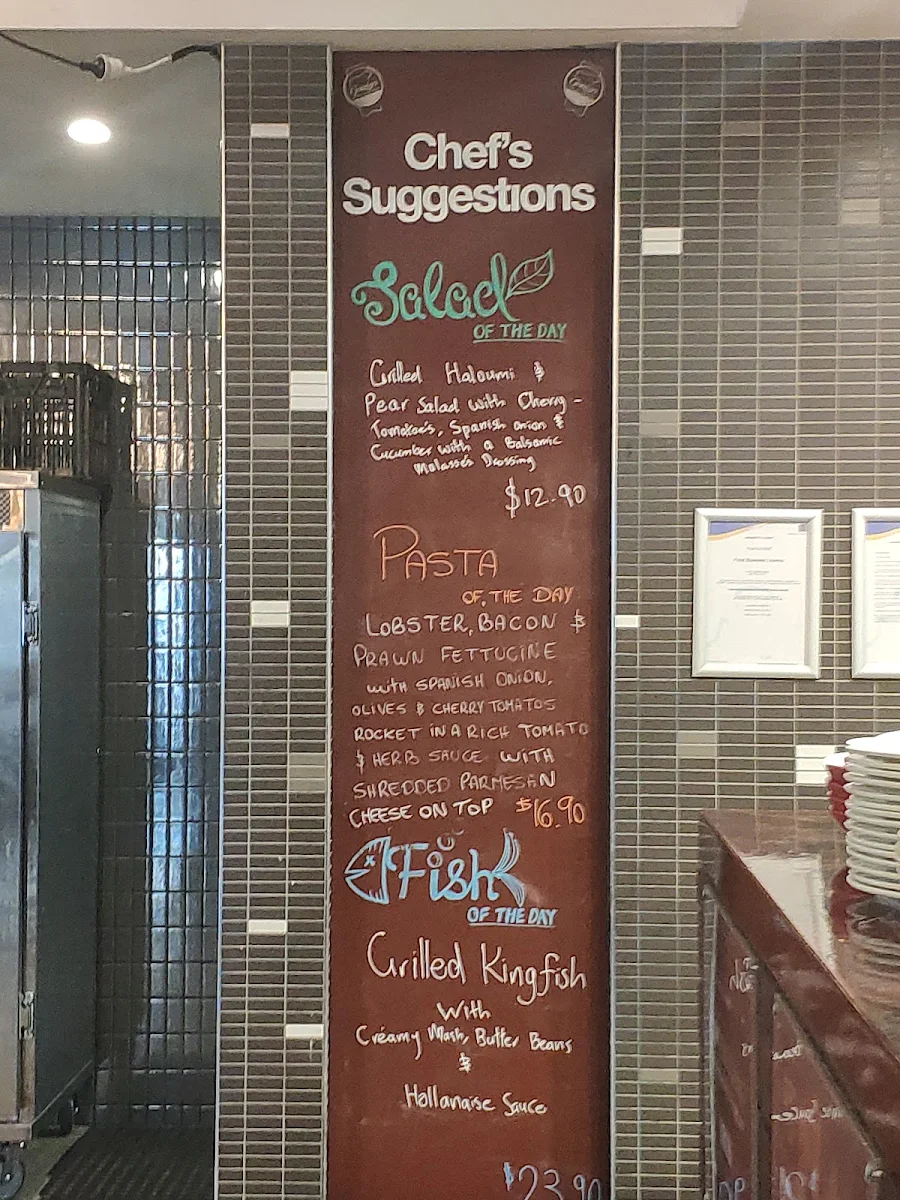 Chef's
Suggestions
Salad
OF THE DAY
Grilled Haloumi &
Pear Salad with Cherry -
Tomatoe's, Spanish onion &
Cucumber with a Balsamic
Molasses Dressing
$12.90
PASTA
OF, THE DAY
LOBSTER, BACON &
PRAWN FETTUCINE
with SPANISH ONION,
OLIVES & CHERRY TOMATOS
ROCKET IN A RICH TOMATO
& HERB SAUCE WITH
SHREDDED PARMESAN
CHEESE ON TOP $16.90
Fish
OF THE DAY
Grilled Kingfish
With
Creamy Mash, Butter Beans
&
Hollanaise Sauce
$23.90